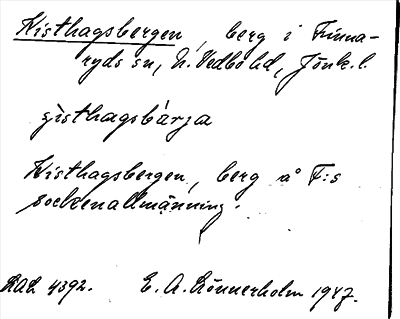 Kisthagsbergen, berg i Finna-
ryds sn, N. Vedbo hd, Jönk. l.
çìsthagsbárja
Kisthagsbergen, berg å F:s
sockenallmänning.
RAÄ 4392. E. A. Lönnerholm 1947.